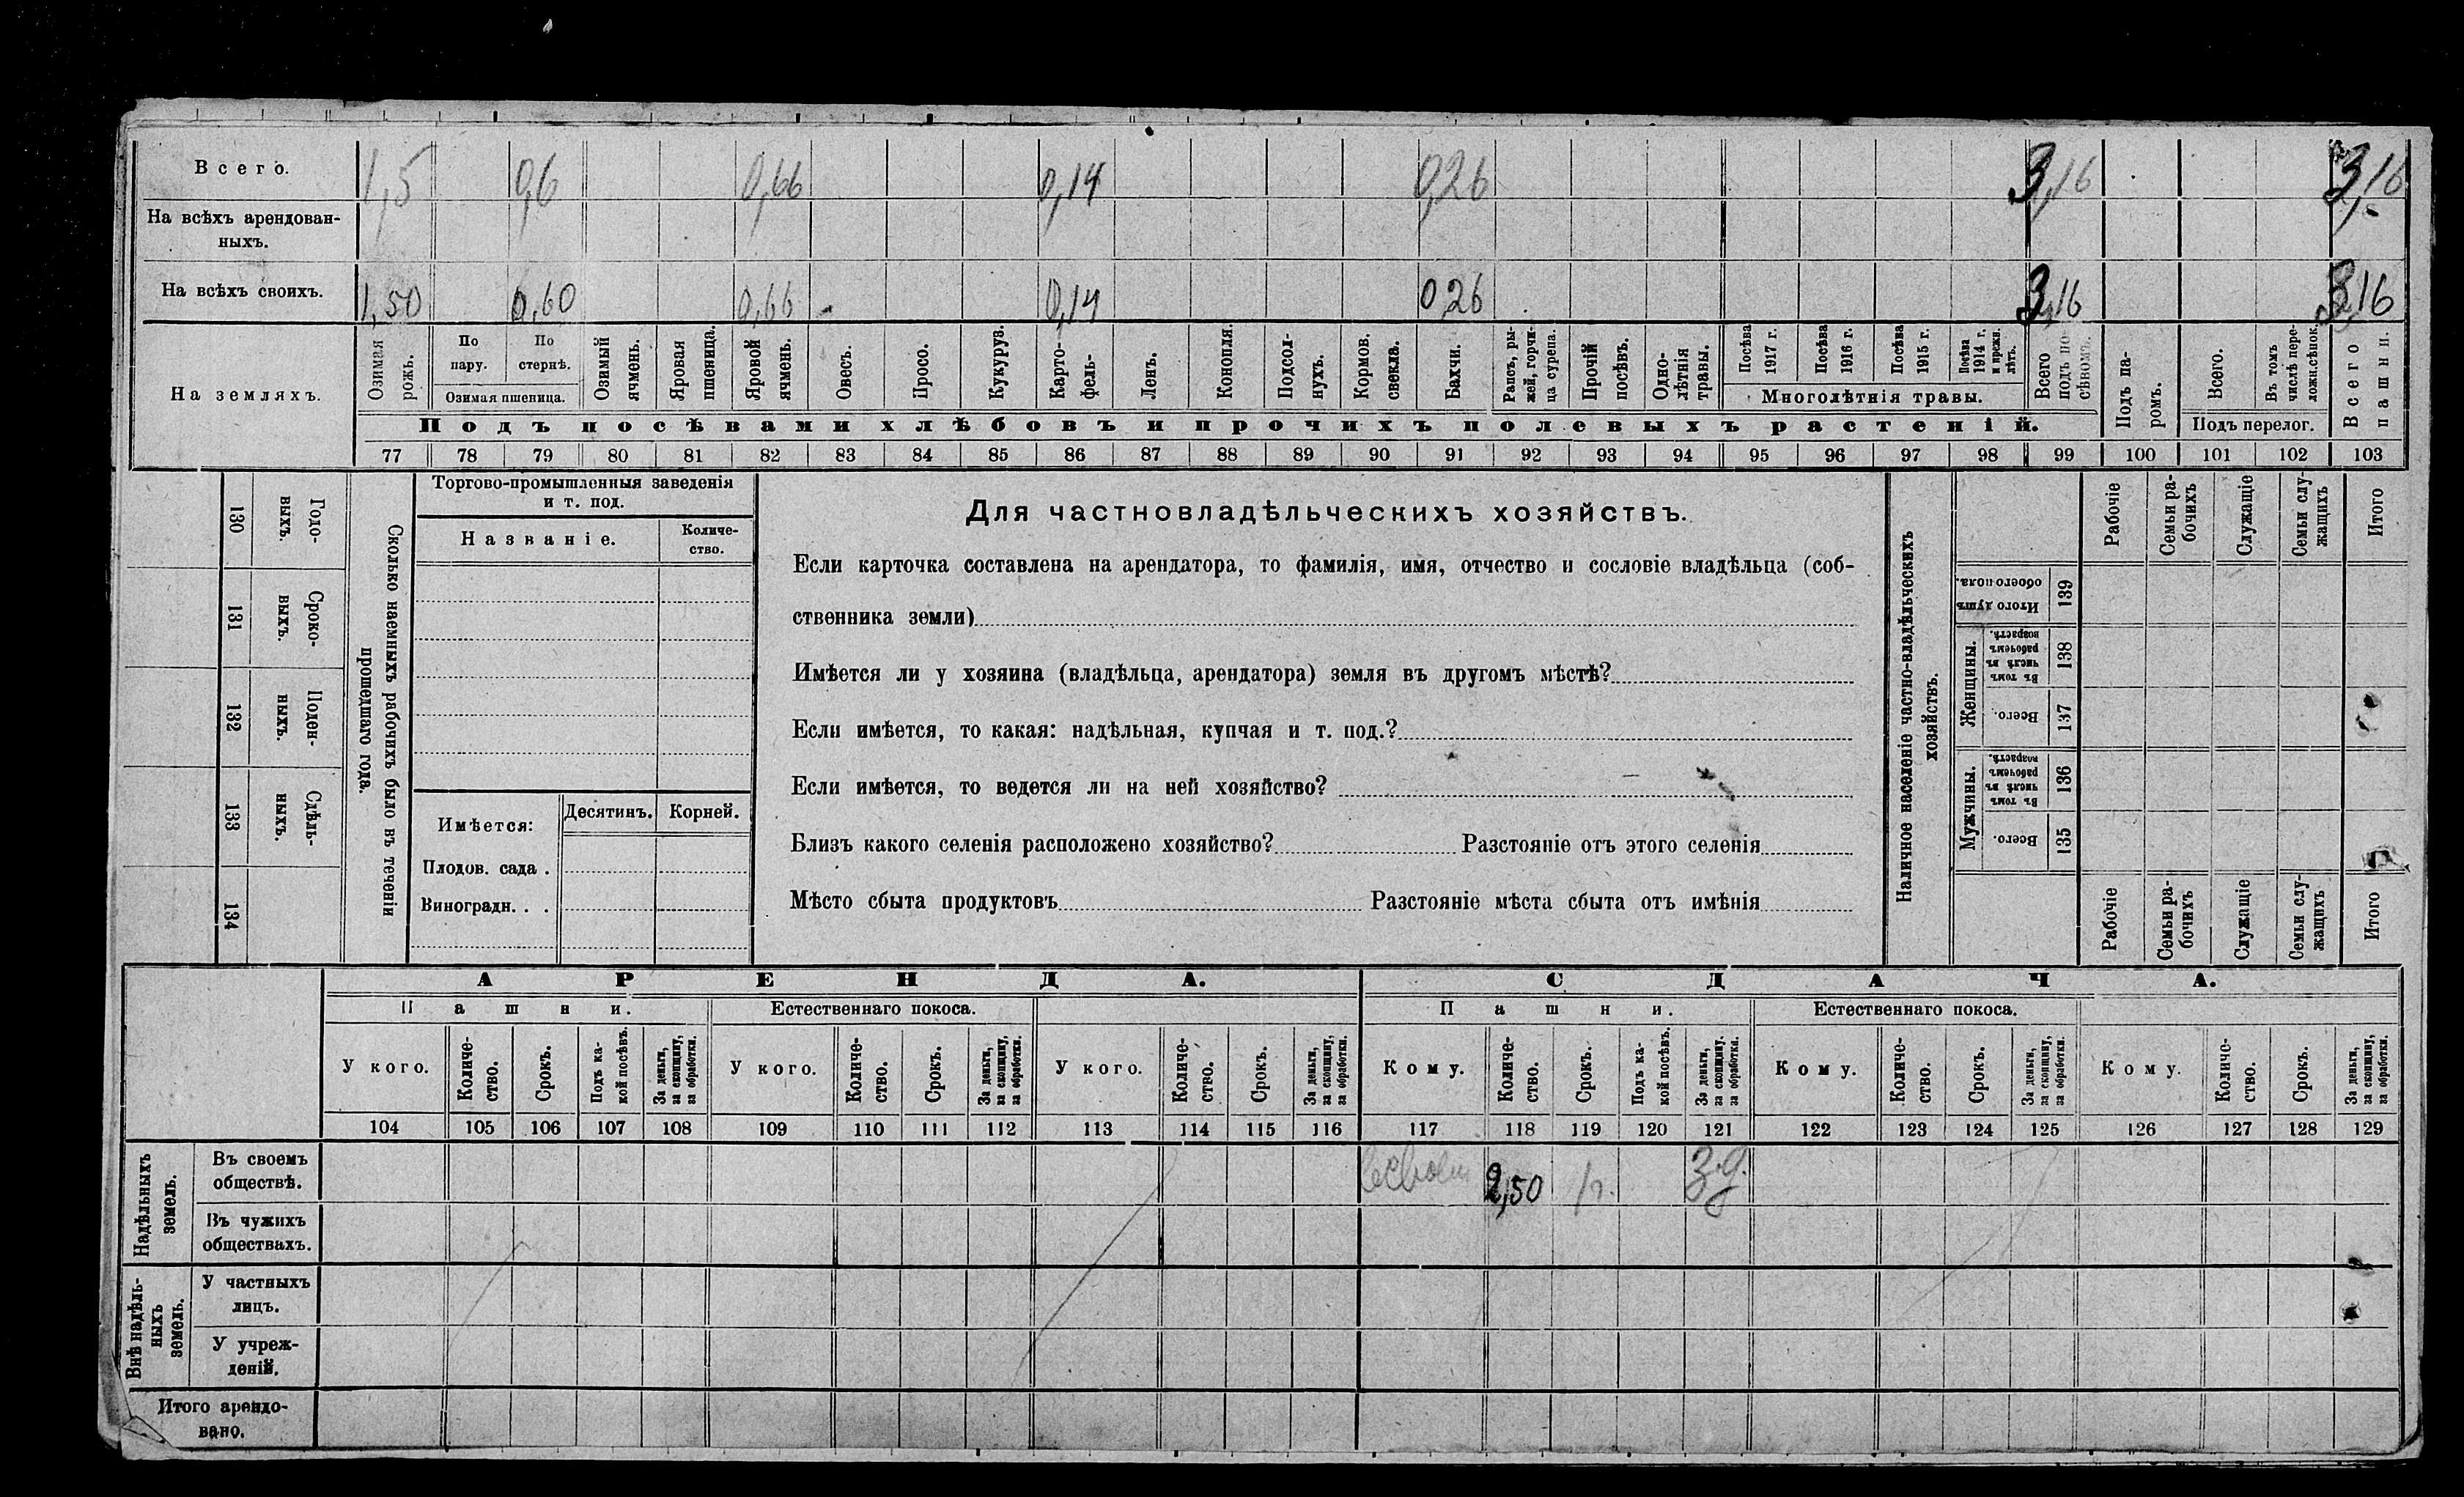 Всего. 1,5 0,6 0,66 0,14 0,26 3,16 3,16
На всѣхъ арендован-
ныхъ.
На всѣхъ своихъ. 1,50 0,60 0,66 0,14 026 3,16 3,16
На земляхъ.
Озимая рожь.
По пару.
По стернѣ.
Озимая пшеница.
Озимый ячмень.
Яровая пшеница.
Яровой ячмень.
Овесъ.
Просо.
Кукуруз.
Карто-
фель-
Ленъ.
Конопля.
Подсол-
нухъ.
Кормов. свекла.
Бахчи.
Рапсъ, ры-
жей, горчи-
ца сурепа.
Прочій посѣвъ.
Одно-
лѣтнія травы.
Посѣва 1917 г.
Посѣва 1916 г.
Посѣва 1915 г.
Посѣва 1914 г. и прежн. лѣтъ.
Многолѣтнія травы.
Всего подъ по-
сѣвомъ.
Подъ па-
ромъ.
Всего.
Въ томъ числѣ пере-
ложн.сѣнок.
Подъ перелог.
Всего пашни.
Подъ посѣвами хлѣбовъ и прочихъ полевыхъ растеній.
77 78 79 80 81 82 83 84 85 86 87 88 89 90 91 92 93 94 95 96 97 98 99 100 101 102 103
130 Годо-
выхъ.
131 Сроко-
выхъ.
132 Поден-
ныхъ.
133 Сдѣль-
ныхъ.
134
Сколько наемныхъ рабочихъ было въ теченіи
прошедшаго года.
Торгово-промышленныя заведенія
и т. под.
Названіе.
Количе-
ство.
Имѣется:
Десятинъ. Корней.
Плодов. сада .
Виноградн. . .
Для частновладѣльческихъ хозяйствъ.
Если карточка составлена на арендатора, то фамилія, имя, отчество и сословіе владѣльца (соб-
ственника земли)
Имѣется ли у хозяина (владѣльца, арендатора) земля въ другомъ мѣстѣ?
Если имѣется, то какая: надѣльная, купчая и т. под.?
Если имѣется, то ведется ли на ней хозяйство?
Близъ какого селенія расположено хозяйство? Разстояніе отъ этого селенія
Мѣсто сбыта продуктовъ Разстояніе мѣста сбыта отъ имѣнія
Наличное населеніе частно-владѣльческихъ
хозяйствъ.
Рабочіе
Семьи ра-
бочихъ
Служащіе
Семьи слу-
жащихъ
Итого
Итого душъ
обоего пола.
139
Женщины.
Въ томъ числѣ въ рабочемъ возрастѣ.
138
Всего.
137
Мужчины.
Въ томъ числѣ въ рабочемъ возрастѣ.
136
Всего.
135
Рабочіе
Семьи ра-
бочихъ
Служащіе
Семьи слу-
жащихъ
Итого
АРЕНДА. СДАЧА.
Пашни. Естественнаго покоса. Пашни. Естественнаго покоса.
У кого.
Количе-
ство.
Срокъ.
Подъ ка-
кой посѣвъ.
За деньги,
за скопщину,
за обработки.
У кого.
Количе-
ство.
Срокъ.
За деньги,
за скопщину,
за обработки.
У кого.
Количе-
ство.
Срокъ.
За деньги,
за скопщину,
за обработки.
Кому.
Количе-
ство.
Срокъ.
Подъ ка-
кой посѣвъ.
За деньги,
за скопщину.
за обработки.
Кому.
Количе-
ство.
Срокъ.
За деньги,
за скопщину,
за обработки.
Кому.
Количе-
ство.
Срокъ.
За деньги,
за скопщину,
за обработки.
104 105 106 107 108 109 110 111 112 113 114 115 116 117 118 119 120 121 122 123 124 125 126 127 128 129
Надѣльныхъ
земель.
Въ своемъ
обществѣ.
2,50 1г. З.д.
Въ чужихъ
обществахъ.
Внѣ надѣль-
ныхъ
земель.
У частныхъ
лицъ.
У учреж-
деній.
Итого арендо-
вано.